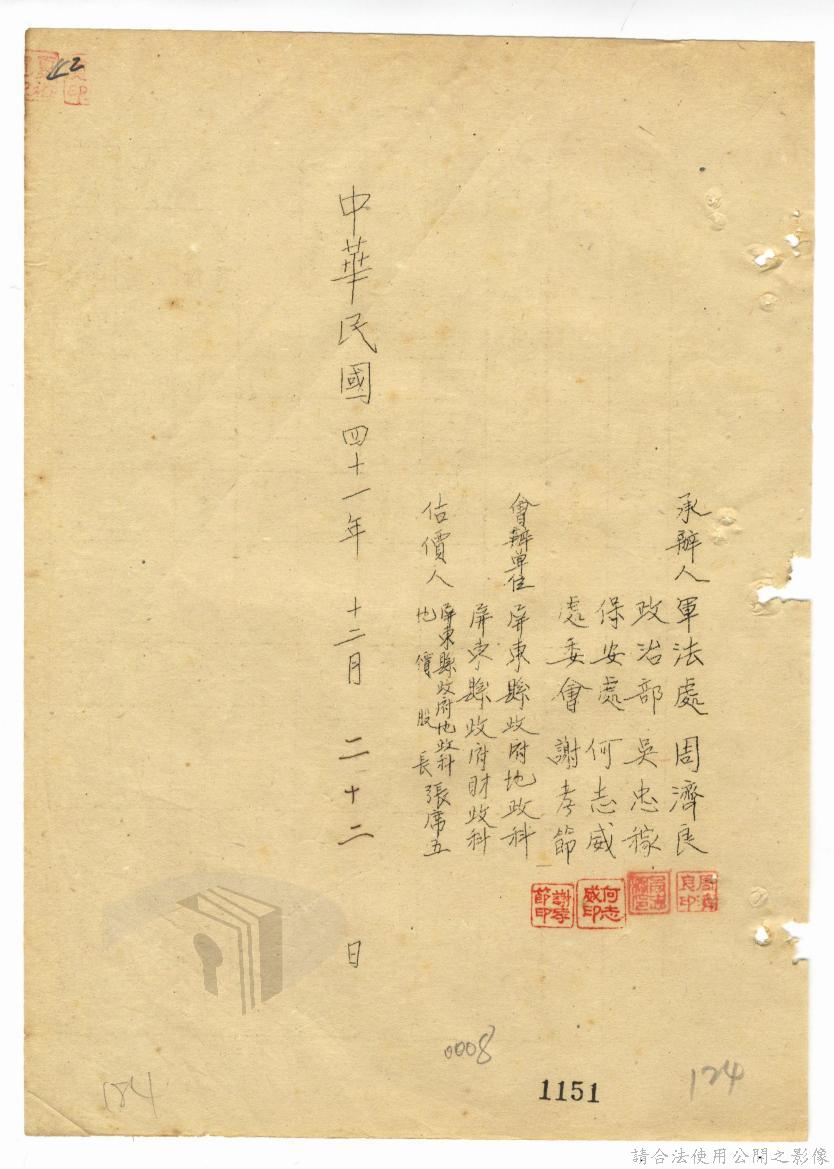 承辦人軍法處 周濟良
政治部 吳忠稼
保安處 何志威
處委會 謝孝節
會辦單位 屏東縣政府地政科
屏東縣政府財政科
估價人 屏東縣政府地政科
地價股長 張席五
中華民國四十一年 十二月 二十二 日
周濟良印
何志威印
謝孝節印
42
0008
1151
124
124
請合法使用公開之影像